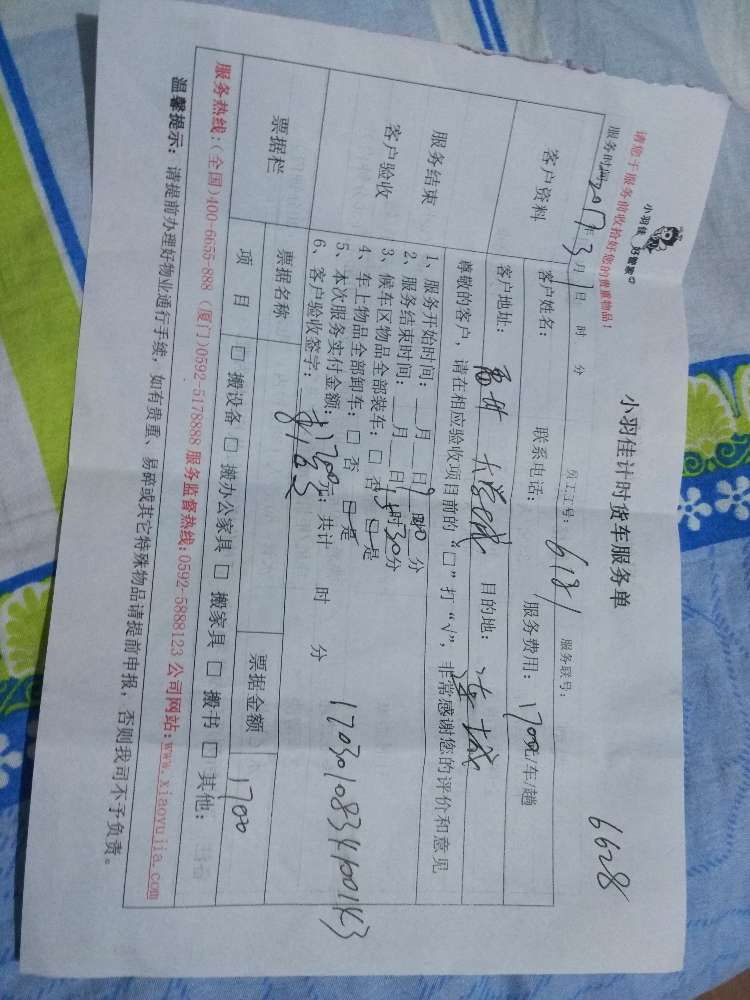 小羽佳 好管家
小羽佳计时货车服务单
6628
请您于服务前收拾好您的贵重物品！
服务时间2017年3月1日 时 分
员工工号：6181
服务联号：
客户资料
客户姓名：
联系电话：
服务费用：1700元/车/趟
客户地址：
大学城
目的地：
连城
服务结束
客户验收
尊敬的客户，请在相应验收项目前的“□”打“√”，非常感谢您的评价和意见
1、服务开始时间：__月__日 分
2、服务结束时间：__月__日 时30分
3、候车区物品全部装车：□ 否 □ 是
4、车上物品全部卸车：□ 否 □ 是
5、本次服务实付金额：1700元；共计 时 分
6、客户验收签字：
1703010834100143
票据栏
票据名称
票据金额
1700
项 目
□ 搬设备 □ 搬办公家具 □ 搬家具 □ 搬书 □ 其他：
服务热线：(全国)400-6655-888 (厦门)0592-5178888 服务监督热线：0592-5888123 公司网站：www.xiaoyujia.com
温馨提示：请提前办理好物业通行手续，如有贵重、易碎或其它特殊物品请提前申报，否则我司不予负责。